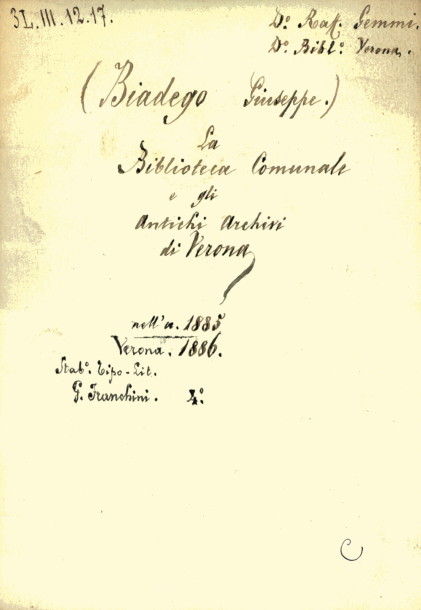 3L.III.12.17.
Dº. Raf. Gemmi.
Dº. Biblº. Verona.
(Biadego Giuseppe.)
La
Biblioteca Comunale
e gli
Antichi Archivi
di Verona
nell'a. 1885
Verona. 1886.
Stabº. Tipo-Lit.
G. Franchini. 4º.
C